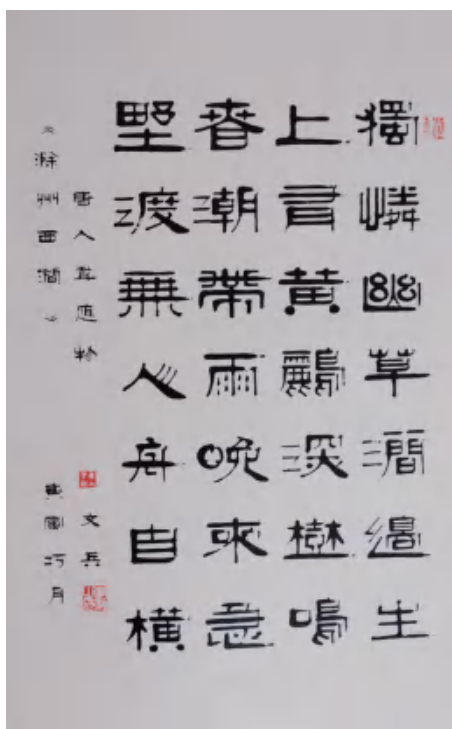 獨憐幽草澗邊生
上有黃鸝深樹鳴
春潮帶雨晚來急
野渡無人舟自橫
唐人韋應物
《滁州西澗》
文兵